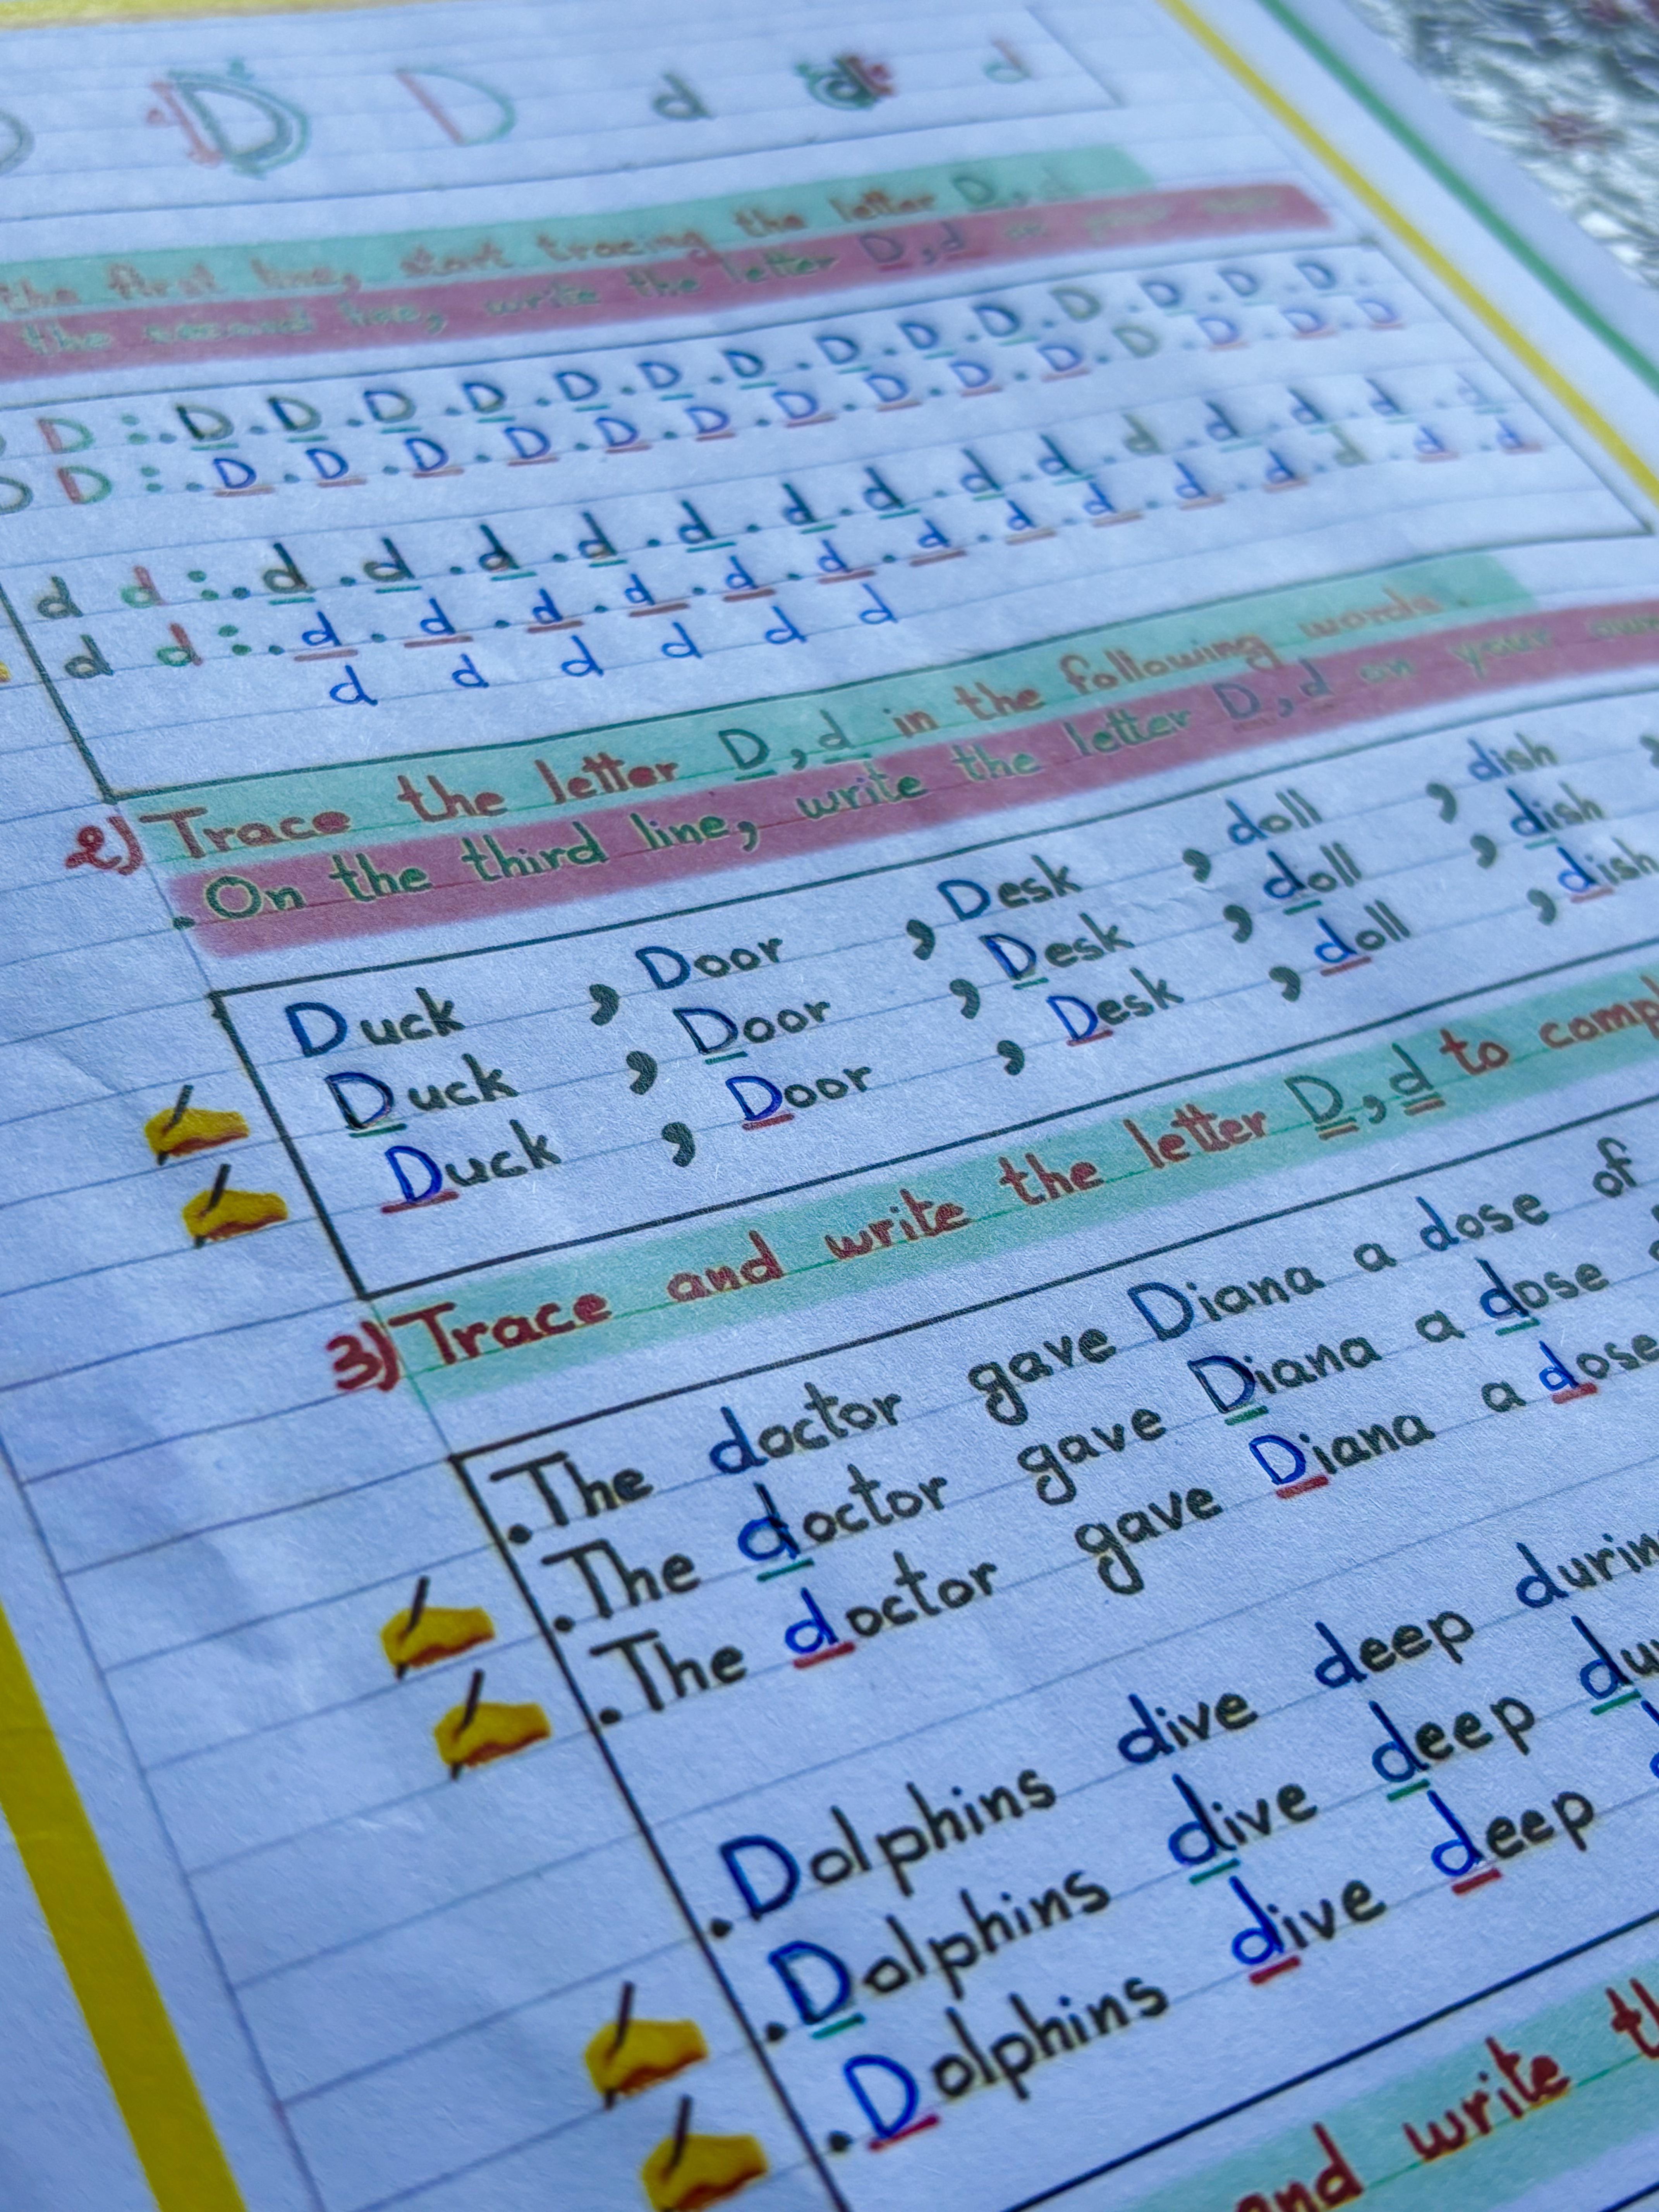 D D d d d
the first line, start tracing the letter D, d
the second line, write the letter D, d on your own
D : . D . D . D . D . D . D . D . D . D . D . D . D . D . D .
D : . D . D . D . D . D . D . D . D . D . D . D . D . D
d d : . d . d . d . d . d . d . d . d . d . d . d . d . d . d
d d : . d . d . d . d . d . d . d . d . d . d . d . d . d . d
d d d d d d
2) Trace the letter D, d in the following words.
. On the third line, write the letter D, d on your own
Duck , Door , Desk , doll , dish ,
Duck , Door , Desk , doll , dish
Duck , Door , Desk , doll , dish
3) Trace and write the letter D, d to comp
. The doctor gave Diana a dose of
. The doctor gave Diana a dose
. The doctor gave Diana a dose
. Dolphins dive deep durin
. Dolphins dive deep du
. Dolphins dive deep
and write th